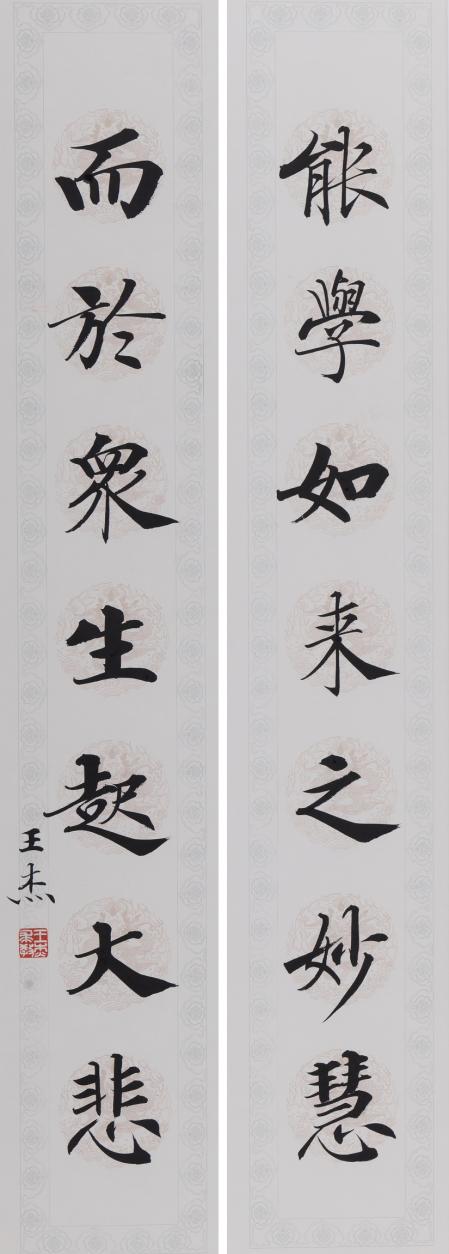 能學如来之妙慧
而於眾生起大悲
王杰